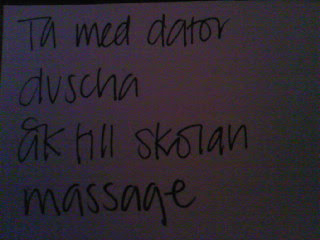 Ta med dator
duscha
åk till skolan
massage